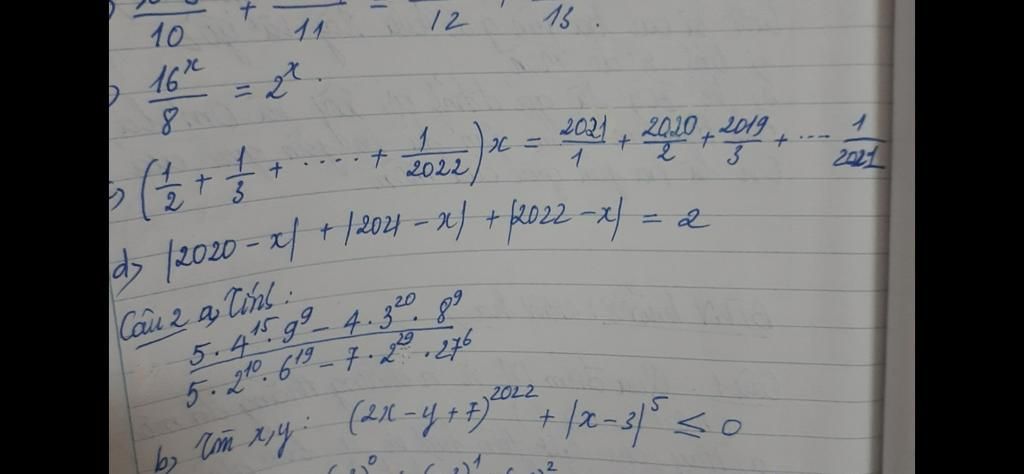 /10 + /11 = /12 + /13.
16^x/8 = 2^x.
(1/2 + 1/3 + .... + 1/2022)x = 2021/1 + 2020/2 + 2019/3 + ... 1/2021
d> |2020 - x| + |2021 - x| + |2022 - x| = 2
Câu 2 a, Tính:
5.4^15.9^9 - 4.3^20.8^9
5.2^10.6^19 - 7.2^29.27^6
b, Tìm x,y: (2x - y + 7)^2022 + |x - 3|^5 ≤ 0